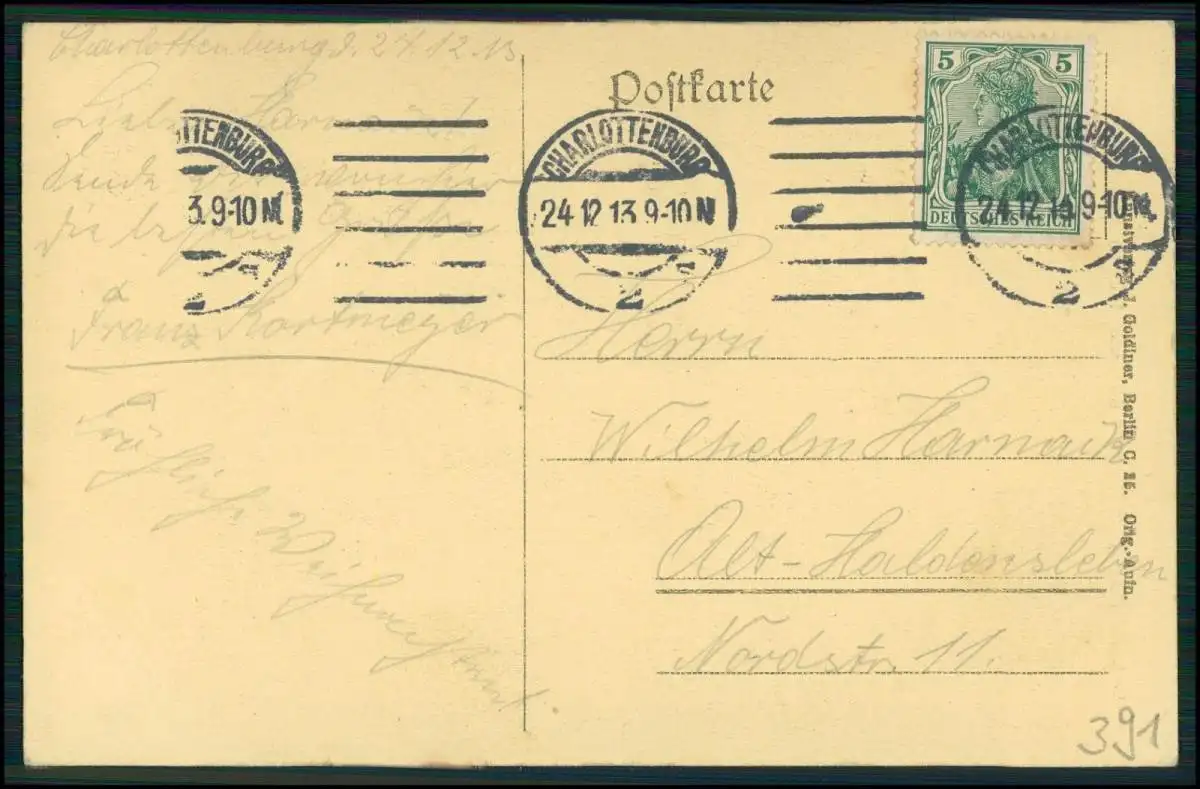 Charlottenburg d. 24.12.13
Postkarte
5 5
DEUTSCHES REICH
CHARLOTTENBURG
24.12.13.9-10N
2
TTENBURG
3.9-10N
2
CHARLOTTENBURG
24.12.13.9-10N
2
Sende
die besten Grüße
Franz Kortmeyer
Fröhliche Weihnachten!
Herrn
Wilhelm Harnack
Alt-Haldensleben
Nordstr. 11.
Goldiner, Berlin C. 25. Orig.-Aufn.
391